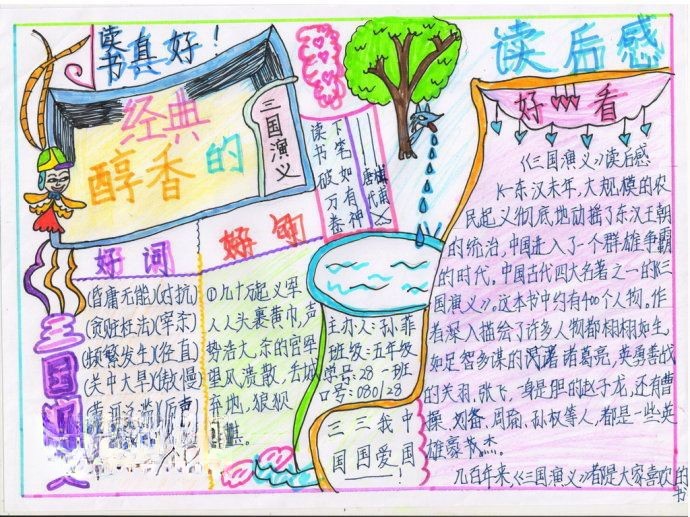 读书真好！
经典
醇香的
三国演义
读书破万卷
下笔如有神
唐代
好词
(昏庸无能)(对抗)
(贪赃枉法)(宰杀)
(频繁发生)(径直)
(关中大旱)(傲慢)
好句
①几十万起义军
人人头裹黄巾，声
势浩大，东的官军
望风溃散，去城
弃地，狼狈
三国
主办人：孙菲
班级：五年级
学号：28 一班
口号：080128
三三我中
国国爱国
！
读后感
好看
《三国演义》读后感
东汉末年，大规模的农
民起义彻底地动摇了东汉王朝
的统治，中国走入了一个群雄争霸
的时代。中国古代四大名著之一的《三
国演义》。这本书中约有400个人物。作
者深入描绘了许多人物都栩栩如生。
如足智多谋的诸葛亮，英勇善战
的关羽、张飞，一身是胆的赵子龙，还有曹
操、刘备、周瑜、孙权等人，都是一些英
雄豪杰……
几百年来《三国演义》都是大家喜欢的
书